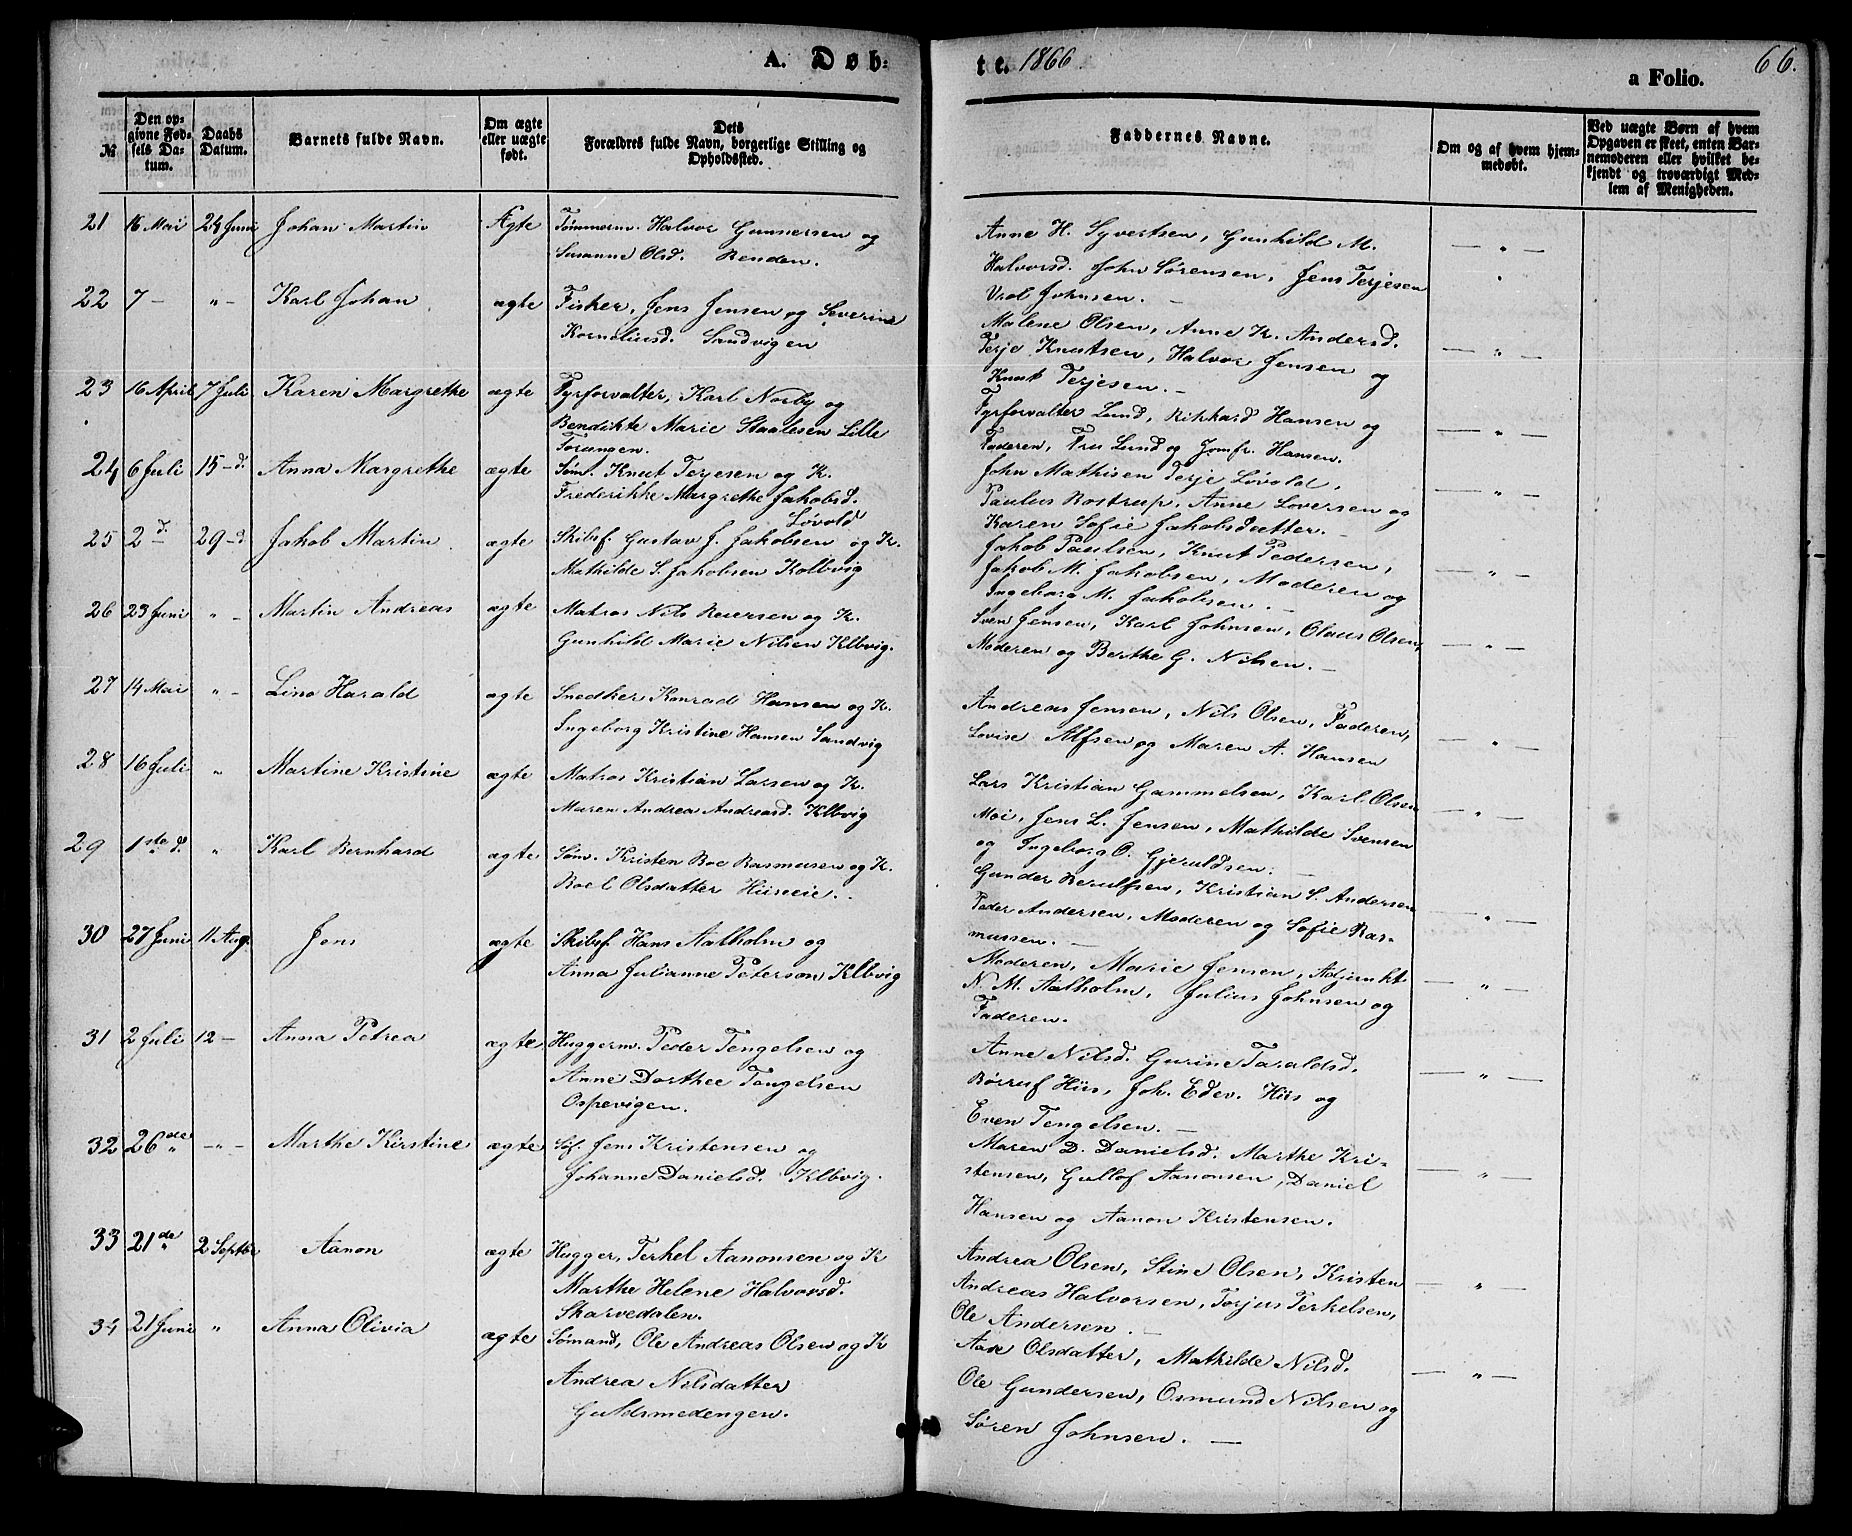 A. Døb-
te. 1866.
a Folio.
66.
№
Den op-
givne Fød-
sels Da-
tum.
Daabs
Datum.
Barnets fulde Navn.
Om ægte
eller uægte
født.
Dets
Forældres fulde Navn, borgerlige Stilling og
Opholdssted.
Faddernes Navne.
Om og af hvem hjem-
medøbt.
Ved uægte Børn af hvem
Opgaven er skeet, enten Bar-
nemoderen eller hvilket be-
kjendt og troværdigt Med-
lem af Menigheden.
21 16 Mai 24 Juni Johan Martin Ægte Tømmerm. Halvor Gunnersen og
Susanne Olsd. Renden.
Anne H. Syvertsen, Gunhild M.
Halvorsd. John Sørensen, Jens Terjesen
Johnsen. —
— „ —
22 7 — „ — Karl Johan ægte Fisker, Jens Jensen og Severine
Korneliusd. Sandvigen
Malene Olsen, Anne K. Andersd.
Terje Knutsen, Halvor Jensen og
Knut Terjesen. —
— „ —
23 16 April 7 Juli Karen Margrethe ægte Fyrforvalter, Karl Norby og
Bendikte Marie Staalesen Lille
Torungen.
Fyrforvalter Lund, Rikkard Hansen og
Faderen, Fru Lund og Jomfr. Hansen.
— „ —
24 6 Juli 15 — d. Anna Margrethe ægte Søm. Knut Terjesen og K.
Frederikke Margrethe Jakobsd.
Løvold
John Mathisen Terje Løvold,
Paulus Rostrup, Anne Loversen og
Karen Sofie Jakobsdatter. —
— „ —
25 2 d. 29 — d Jakob Martin ægte Skibsf. Gustav J. Jakobsen og K.
Mathilde S. Jakobsen Kolbvig
Jakob Paulsen, Knut Pedersen,
Jakob M. Jakobsen, Moderen og
Ingeborg M. Jakobsen. —
— „ —
26 23 Juni „ — Martin Andreas ægte Matros Nils Reiersen og K.
Gunhild Marie Nilsen Klbvig.
Sven Jensen, Karl Johnsen, Olaus Olsen,
Moderen og Berthe G. Nilsen. —
— „ —
27 14 Mai „ — Lino Harald ægte Snedker Konrad Hansen og K.
Ingeborg Kristine Hansen Sandvig
Andreas Jensen, Nils Olsen, Faderen,
Lovise Alfsen og Maren A. Hansen
— „ —
28 16 Juli „ Martine Kristine ægte Matros Kristian Larsen og K.
Maren Andrea Andreasd. Klbvig
Lars Kristian Gammelsen, Karl Olsen
Moi, Jens L. Jensen, Mathilde Svensen
og Ingeborg O. Gjeruldsen. —
— „ —
29 1ste d. „ Karl Bernhard ægte Søm. Kristen Roe Rasmusen og K.
Roel Olsdatter
Gunder Berulfsen, Kristian S. Andersen
Peder Andersen, Moderen og Sofie Ras-
mussen. —
— „ —
30 27 Juni 11 Aug. Jens ægte Skibsf. Hans Aalholm og
Anna Julianne Peterson Klbvig
Moderen, Marie Jensen, Adjunkt
N. M. Aalholm, Julius Johnsen og
Faderen.
— „ —
31 2 Juli 12 — Anna Petrea ægte Huggerm. Peder Tengelsen og
Anne Dorthee Tengelsen
Ospevigen.
Anne Nilsd. Gurine Taraldsd.
Hiis, Joh. Edv. Hiis og
Even Tengelsen. —
— „ —
32 26de „ — „ — Marthe Kirstine ægte Sø. Jens Kristensen og
Johanne Danielsd. Klbvig.
Maren D. Danielsd. Marthe Kri-
stensen, Gullof Aanonsen, Daniel
Hansen og Aanon Kristensen.
— „ —
33 21de „ 2 Septbr Aanon ægte Hugger, Terkel Aanonsen og K
Marthe Helene Halvorsd.
Skarvedalen.
Andrea Olsen, Stine Olsen, Kristen
Andreas Halvorsen, Torjus Terkelsen,
Ole Andersen. —
— „ —
34 21 Juni „ Anna Olivia ægte Sømand, Ole Andreas Olsen og K
Andrea Nilsdatter
Guldsmedengen.
Aase Olsdatter, Mathilde Nilsd.
Ole Gundersen, Osmund Nilsen og
Søren Johnsen. —
— „ —